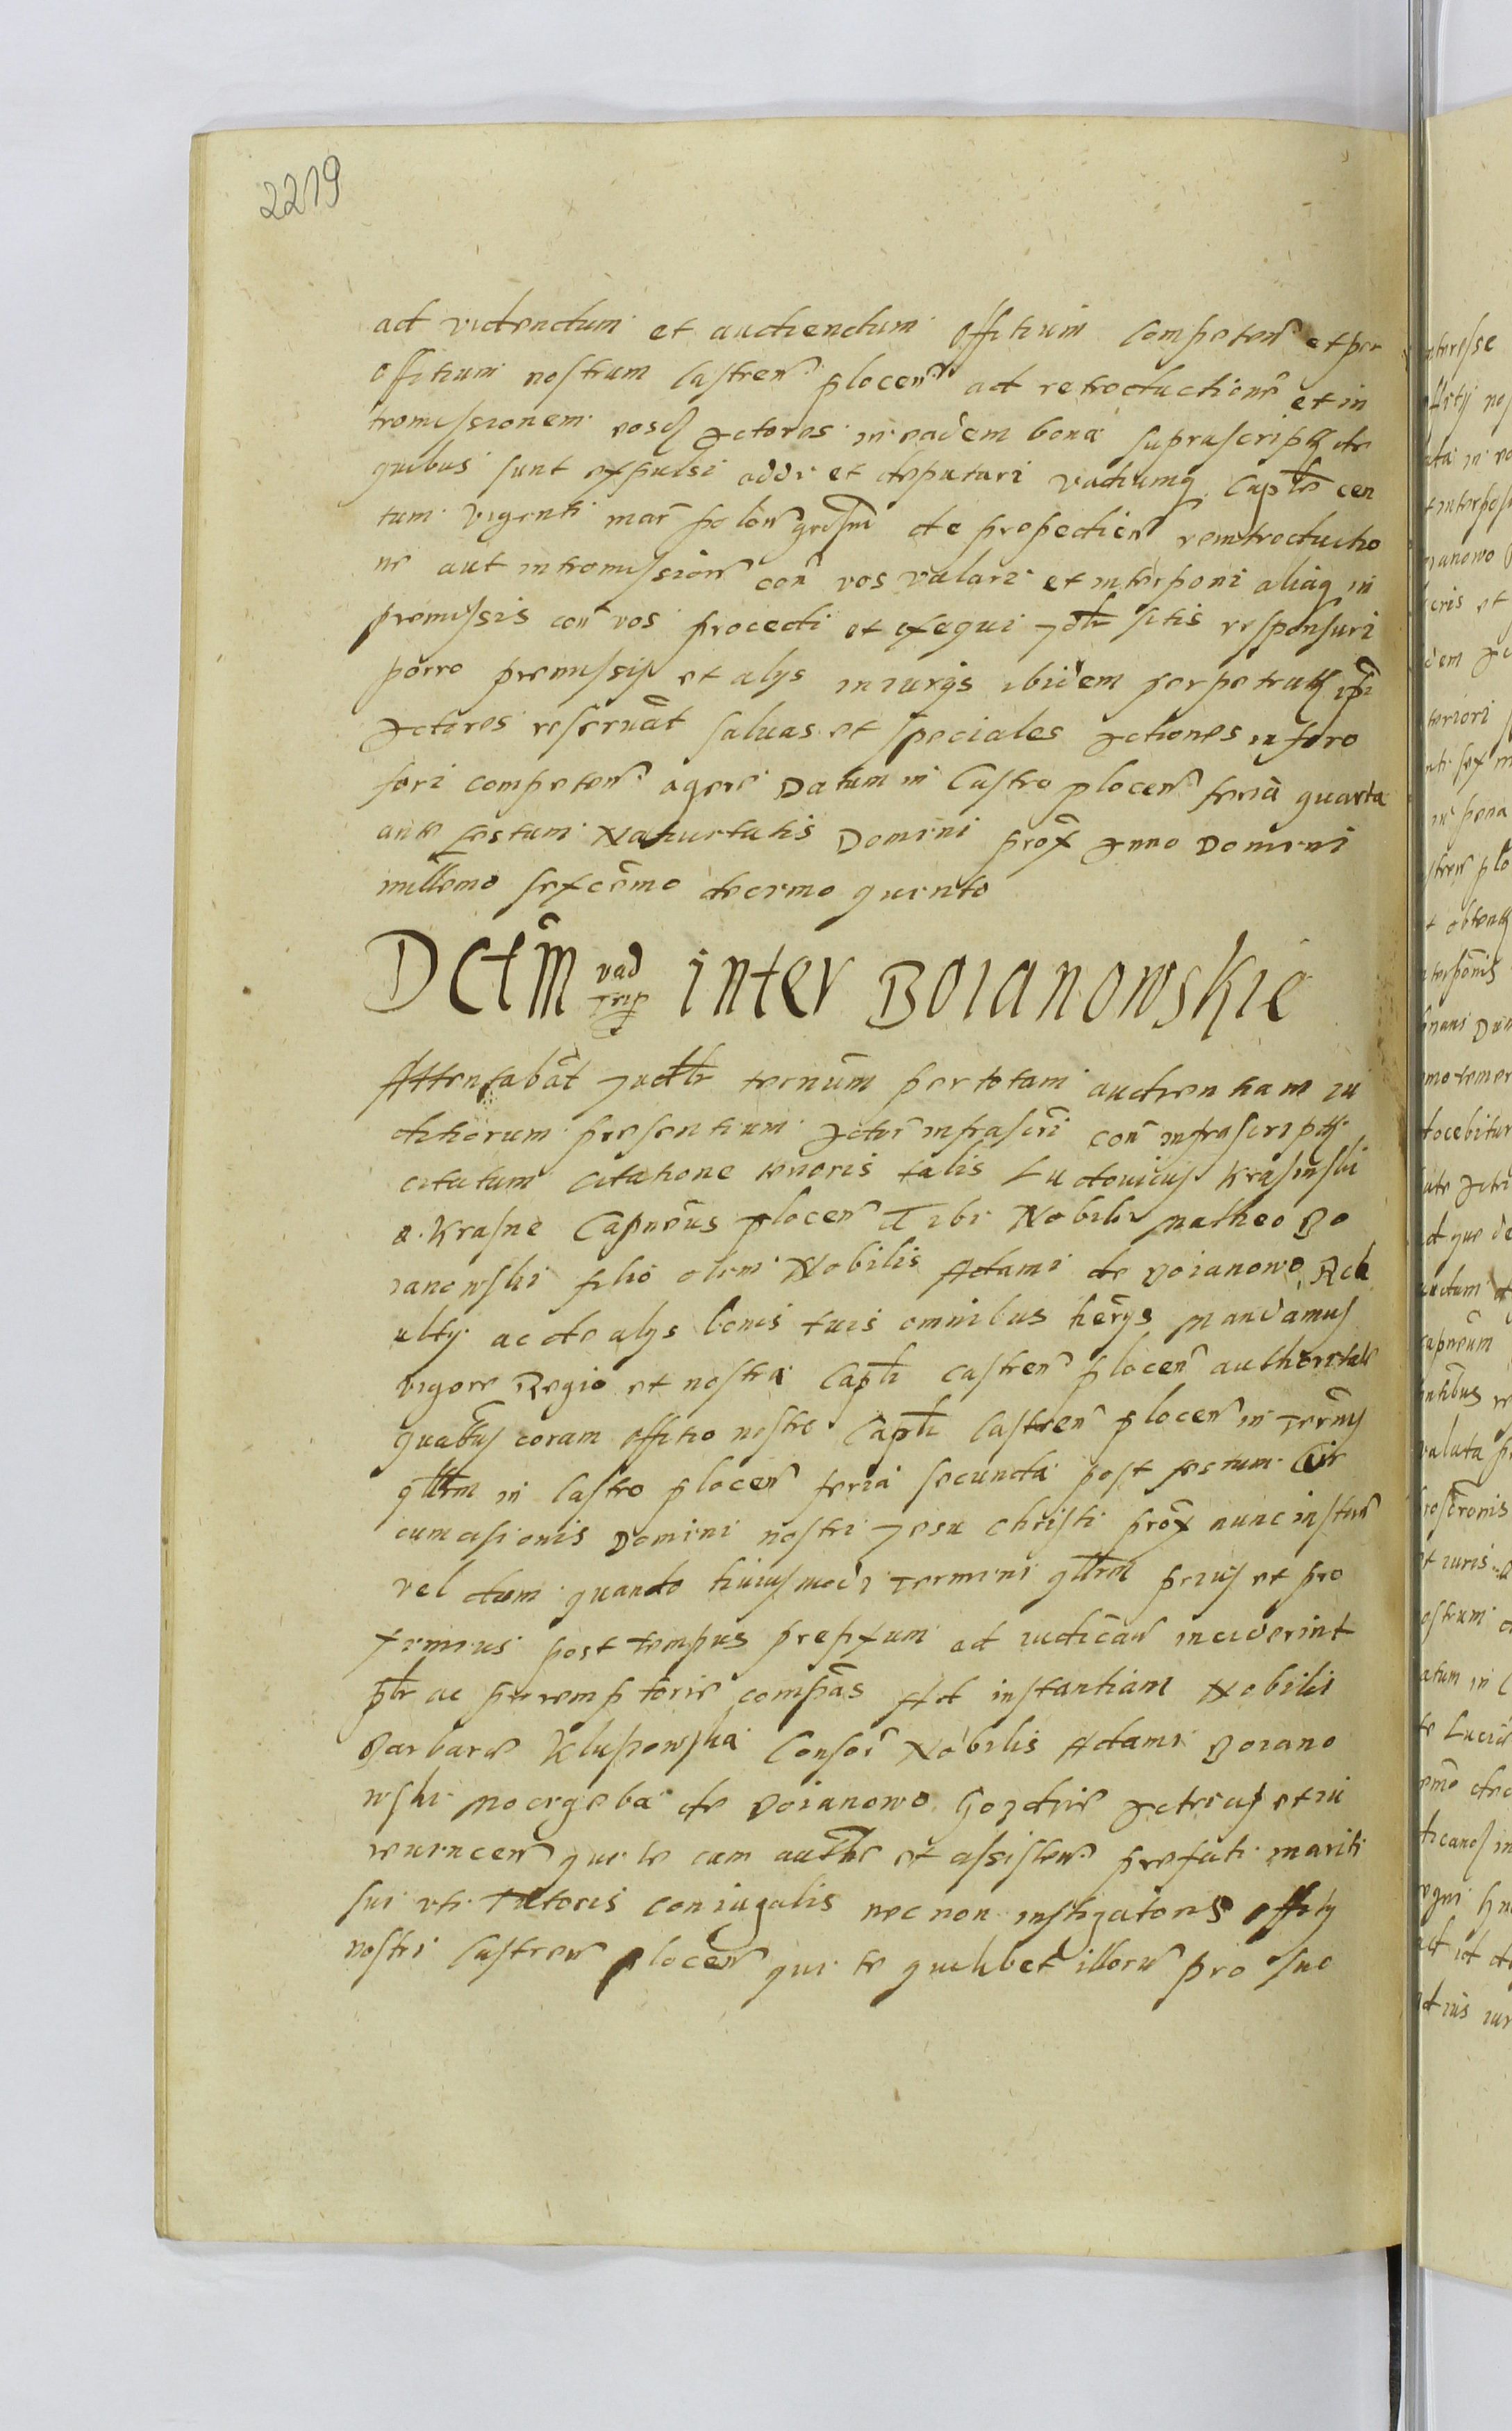 2219
ad videndum et audiendum Offitium Competen et per
Offitium nostrum Castren plocen ad retroductione et in
tromissionem eosd Actores in eadem bona suprascript de
quibus sunt expulsi addi et deputari Vadiumq Captle cen
tum Viginti mar polon de propedien reintroductio
ne aut intromission con vos valari et interponi aliaq in
premissis con vos procedi et exequi Jdtr sitis responsuri
porro premissis et alys iniurys ibidem perpetrat ipi
Actores reseruat saluas et speciales Actiones in foro
fori competen agere Datum in Castro plocen feria quarta
ante festum Natiuitatis Domini prox Anno Domini
millemo sexcemo decimo quinto
Dctm vad inter Boianowskie
Attentabat Judtr ternum per totam audientiam iu
ditiorum presentium Actor infrascri con infrascript
citatum citatione tenoris talis Ludouicus Krasinski
a Krasne Capneus plocen Tibi Nobili Matheo Bo
ianowski filio olim Nobilis Adami de Boianowo
ac de alys bonis tuis omnibus herys Mandamus
vigore Regio et nostra Captli castren plocen authoritate
quatus coram offitio nostro Captli Castren plocen in Ternis
qllrm in Castro plocen feria secunda post festum Cir
cumcisionis Domini nostri Jesu Christi prox nunc instan
vel dum quando huiusmodi Termini qllrm prius et pro
ximius post tempus prefixum ad iudican inciderint
pltr ac peremptorie compas Ad instantiam Nobilis
Barbare Klupowska Consor Nobilis Adami Boiano
wski de Boianowo Gozdzie Actricis et iu
reuincen que te cum authe et assisten prefati mariti
sui vti Tutoris coniugalis necnon instigatoris offity
nostri Castren plocen qui te quilibet illoru pro suo